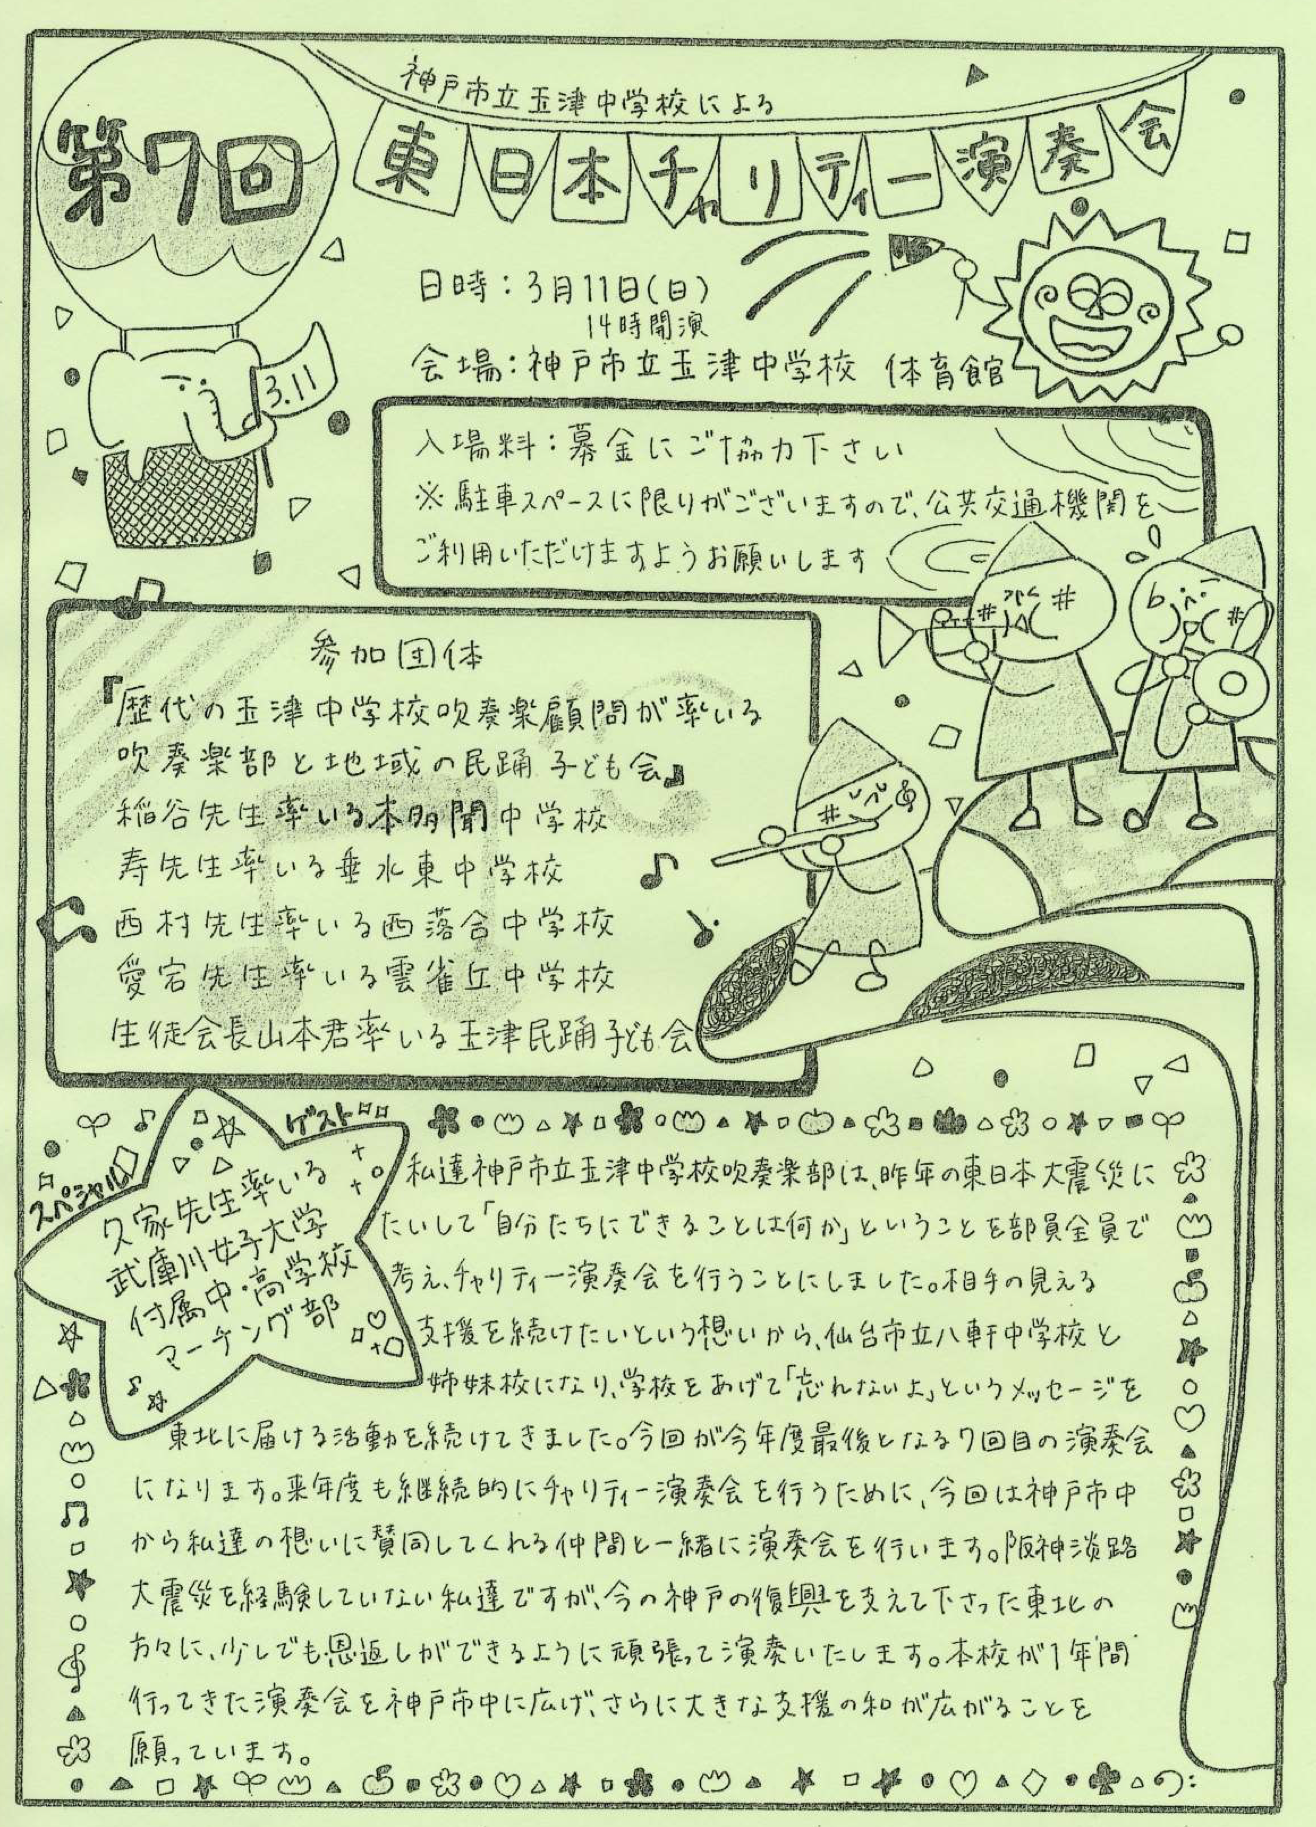 神戸市立玉津中学校による
第7回
東日本チャリティー演奏会
日時:3月11日(日)
14時開演
会場:神戸市立玉津中学校 体育館
3.11
入場料:募金にご協力下さい
※駐車スペースに限りがございますので、公共交通機関を
ご利用いただけますようお願いします
参加団体
『歴代の玉津中学校吹奏楽顧問が率いる
吹奏楽部と地域の民踊子ども会』
稲谷先生率いる本多聞中学校
寿先生率いる垂水東中学校
西村先生率いる西落合中学校
愛宕先生率いる雲雀丘中学校
生徒会長山本君率いる玉津民踊子ども会
スペシャルゲスト
久家先生率いる
武庫川女子大学
付属中・高学校
マーチング部
私達神戸市立玉津中学校吹奏楽部は、昨年の東日本大震災に
たいして「自分たちにできることは何か」ということを部員全員で
考え、チャリティー演奏会を行うことにしました。相手の見える
支援を続けたいという想いから、仙台市立八軒中学校と
姉妹校になり、学校をあげて「忘れないよ」というメッセージを
東北に届ける活動を続けてきました。今回が今年度最後となる7回目の演奏会
になります。来年度も継続的にチャリティー演奏会を行うために、今回は神戸市中
から私達の想いに賛同してくれる仲間と一緒に演奏会を行います。阪神淡路
大震災を経験していない私達ですが、今の神戸の復興を支えて下さった東北の
方々に、少しでも恩返しができるように頑張って演奏いたします。本校が1年間
行ってきた演奏会を神戸市中に広げ、さらに大きな支援の和が広がることを
願っています。